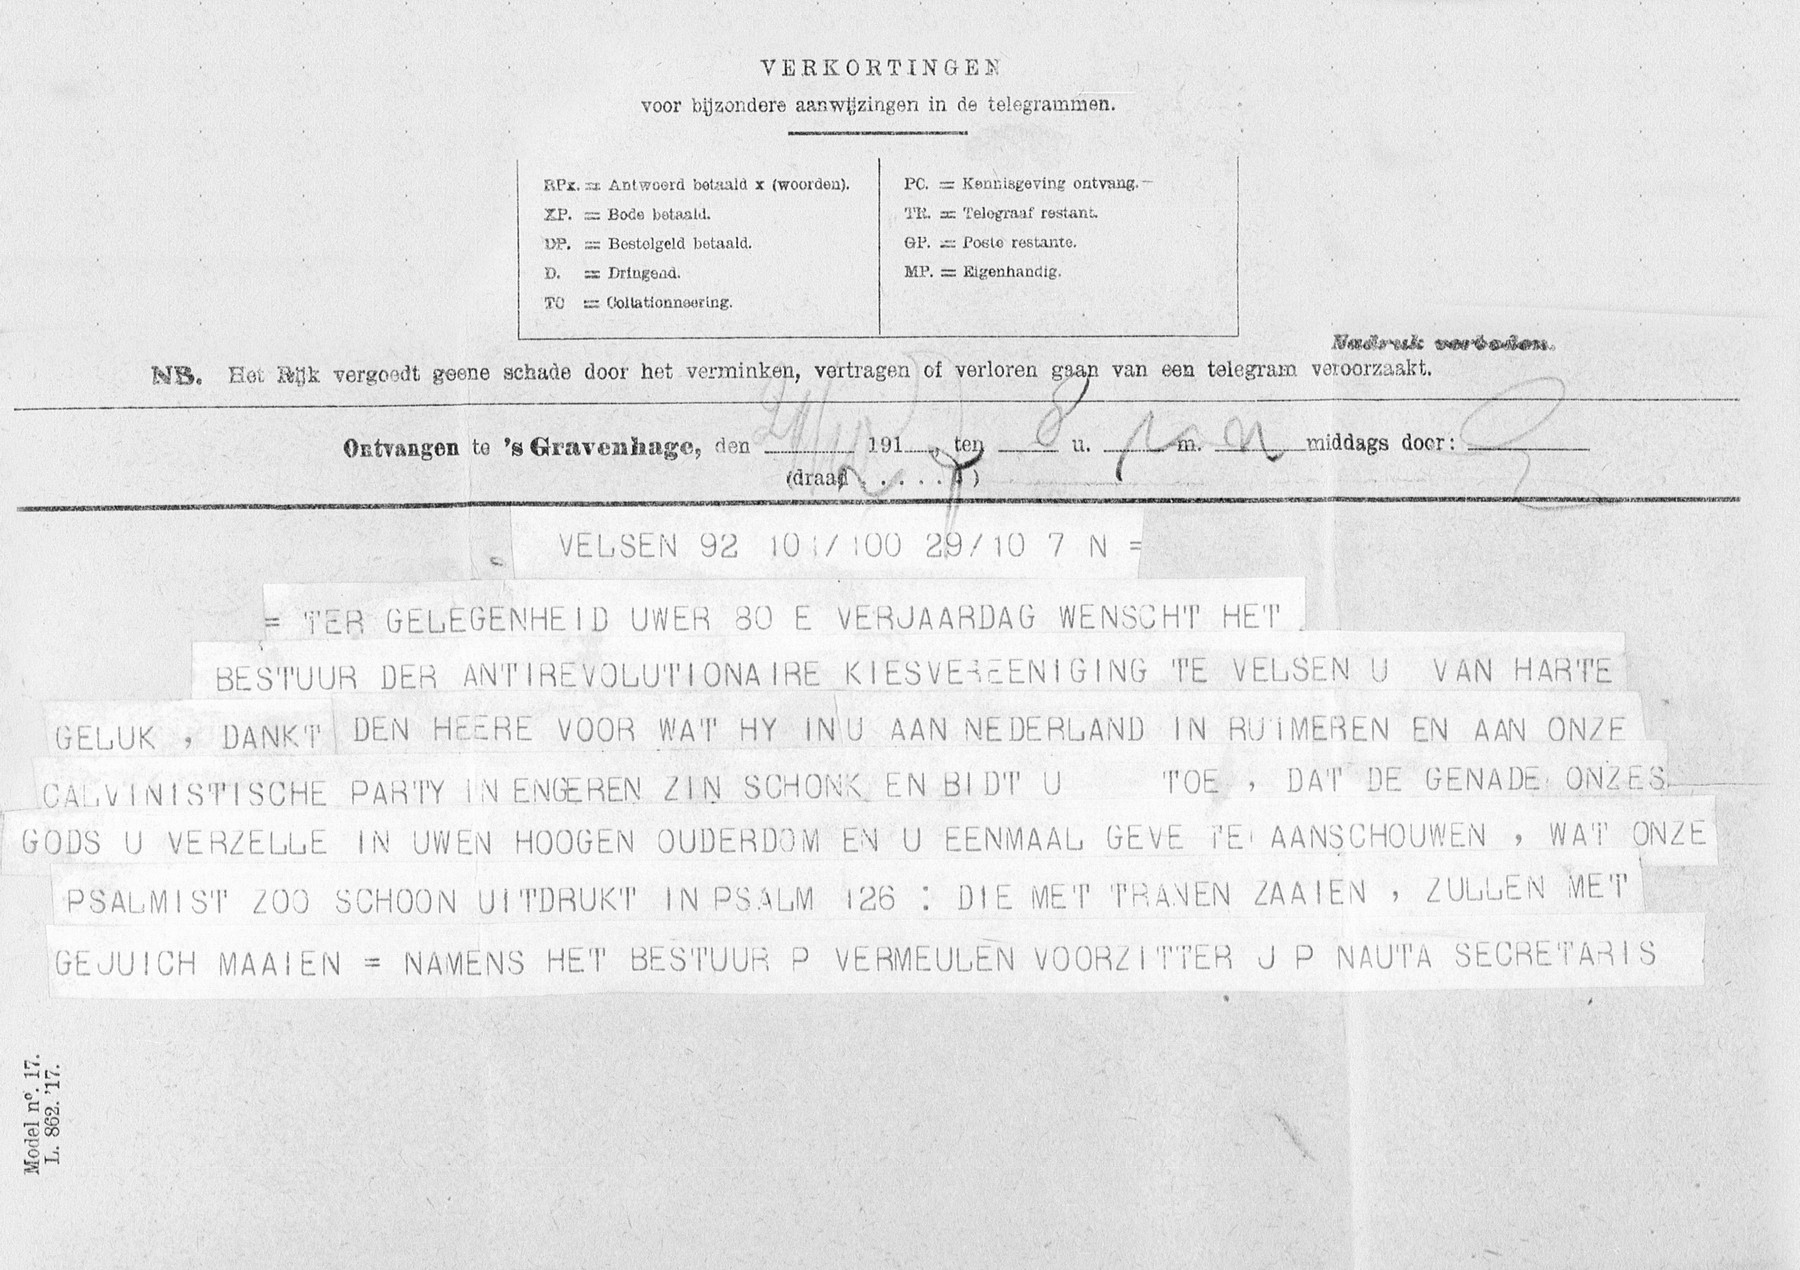 VERKORTINGEN
voor bijzondere aanwijzingen in de telegrammen.
RPx. = Antwoord betaald x (woorden).
XP. = Bode betaald.
DP. = Bestelgeld betaald.
D. = Dringend.
TC = Collationneering.
PC. = Kennisgeving ontvang.
TR. = Telegraaf restant.
GP. = Poste restante.
MP. = Eigenhandig.
Nadruk verboden.
NB. Het Rijk vergoedt geene schade door het verminken, vertragen of verloren gaan van een telegram veroorzaakt.
Ontvangen te 's Gravenhage, den 191 , ten 8 u. m. middags door:
(draad . . . . )
VELSEN 92 101/100 29/10 7 N =
= TER GELEGENHEID UWER 80 E VERJAARDAG WENSCHT HET
BESTUUR DER ANTIREVOLUTIONAIRE KIESVEREENIGING TE VELSEN U VAN HARTE
GELUK , DANKT DEN HEERE VOOR WAT HY IN U AAN NEDERLAND IN RUIMEREN EN AAN ONZE
CALVINISTISCHE PARTY IN ENGEREN ZIN SCHONK EN BIDT U TOE , DAT DE GENADE ONZES
GODS U VERZELLE IN UWEN HOOGEN OUDERDOM EN U EENMAAL GEVE TE AANSCHOUWEN , WAT ONZE
PSALMIST ZOO SCHOON UITDRUKT IN PSALM 126 : DIE MET TRANEN ZAAIEN , ZULLEN MET
GEJUICH MAAIEN = NAMENS HET BESTUUR P VERMEULEN VOORZITTER J P NAUTA SECRETARIS
Model nº. 17.
L. 862. '17.